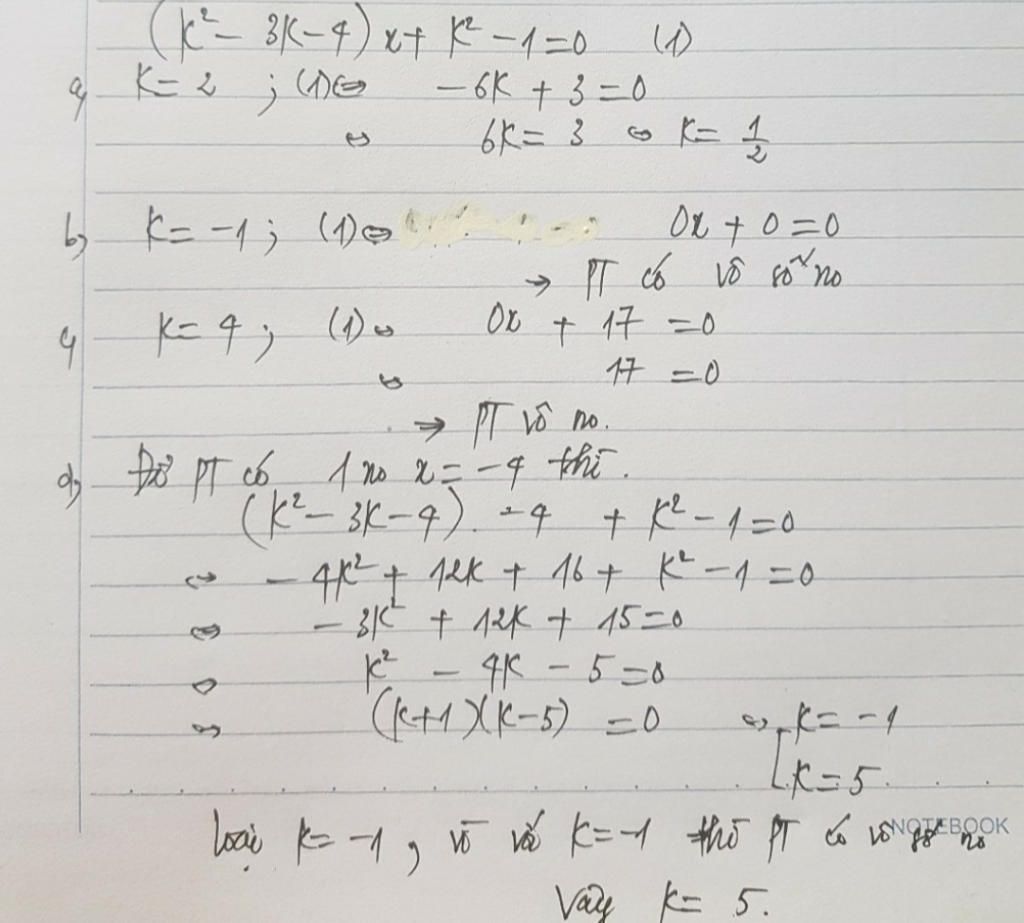 (k² - 3k - 4) x + k² - 1 = 0 (1)
a) k = 2 ; (1) ⇔ - 6k + 3 = 0
⇔ 6k = 3 ⇔ k = 1/2
b) k = -1 ; (1) ⇔ 0x + 0 = 0
→ PT có vô số no
c) k = 4 ; (1) ⇔ 0x + 17 = 0
⇔ 17 = 0
→ PT vô no.
d) Để PT có 1 no x = -4 thì.
(k² - 3k - 4) . -4 + k² - 1 = 0
⇔ - 4k² + 12k + 16 + k² - 1 = 0
⇔ - 3k² + 12k + 15 = 0
⇔ k² - 4k - 5 = 0
⇔ (k+1)(k-5) = 0 ⇔ [ k = -1
k = 5.
loại k = -1, vì với k = -1 thì PT có vô số no
NOTEBOOK
Vậy k = 5.